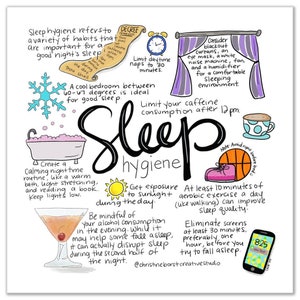 Sleep hygiene refers to
a variety of habits that
are important for a
good night's sleep.
Limit daytime
naps to 30
minutes.
Consider
blackout
curtains, an
eye mask, a white
noise machine, fan,
and a humidifier
for a comfortable
sleeping
environment.
A cool bedroom between
is ideal
for good sleep.
Limit your caffeine
consumption after 12pm.
Sleep
hygiene
Create a
calming nighttime
routine, like a warm
bath, light stretching,
and reading a book.
keep lights low.
Get exposure
to sunlight
during the day.
At least 10 minutes of
aerobic exercise a day
(like walking) can improve
sleep quality.
Be mindful of
your alcohol consumption
in the evening. While it
may help some fall asleep,
it can actually disrupt sleep
during the second half of
the night.
Eliminate screens
at least 30 minutes,
preferably one
hour, before you
try to fall asleep.
@christineborstcreativestudio